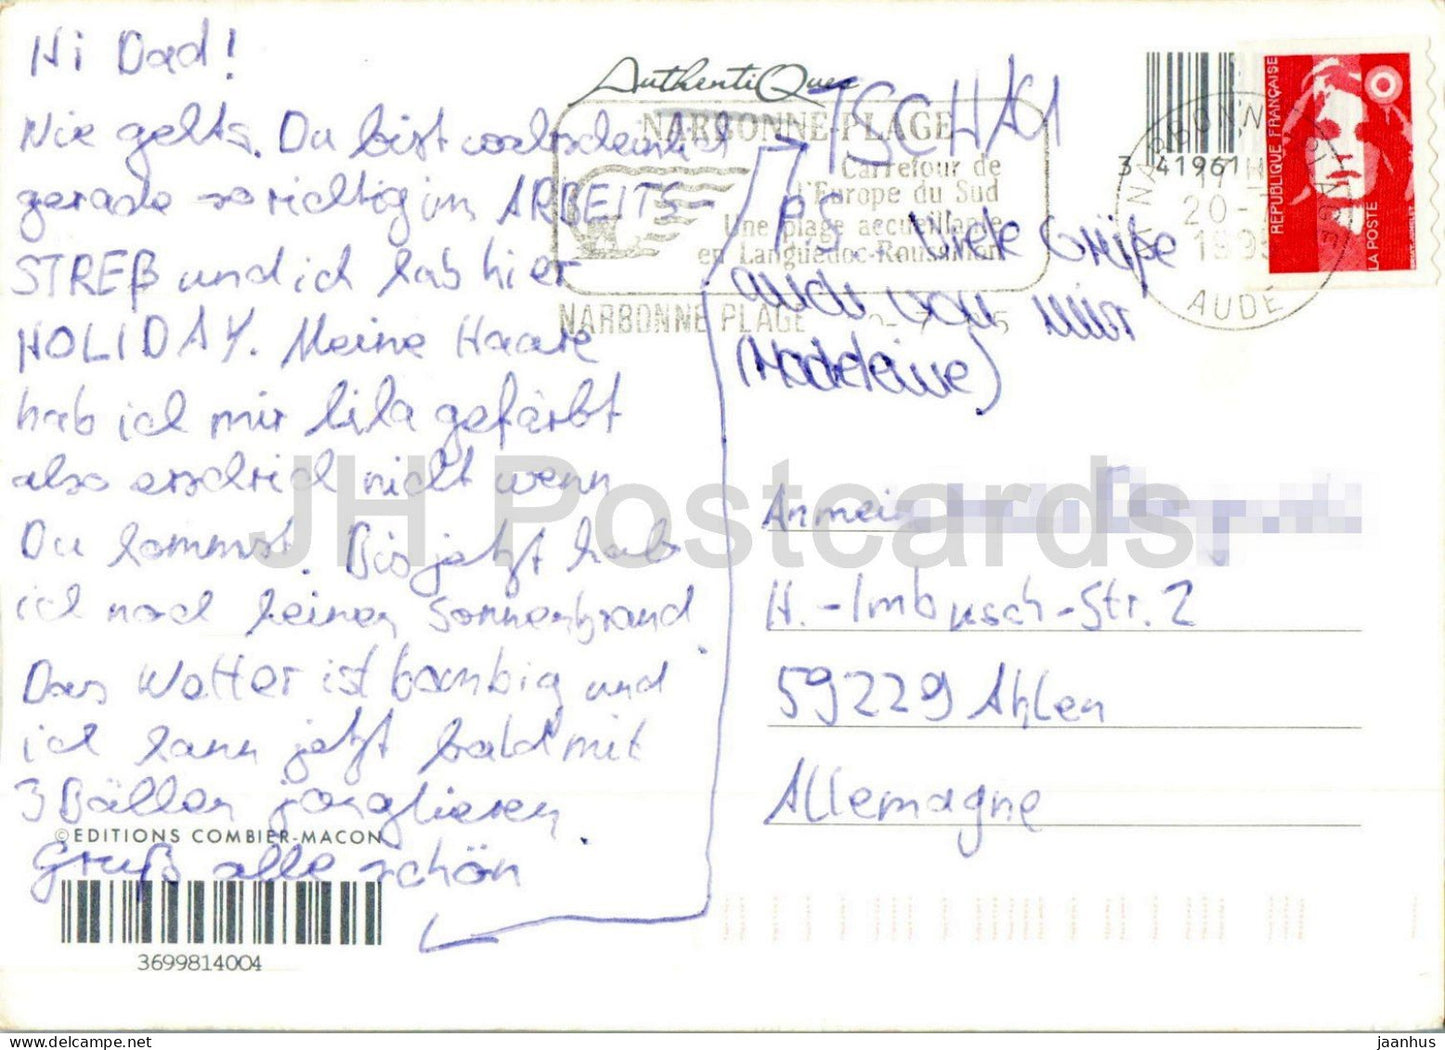 Hi Dad!
Wie gehts. Du bist wahrscheinlich
gerade so richtig im ARBEITS-
STREß und ich hab hier
HOLIDAY. Meine Haare
hab ich mir lila gefärbt
also erschrick nicht wenn
Du kommst. Bis jetzt hab
ich noch keinen Sonnenbrand.
Das Wetter ist bombig und
ich kann jetzt bald mit
3 Bällen jonglieren.
Gruß alle schön
©EDITIONS COMBIER-MACON
3699814004
AuthentiQues
TSCHAU
NARBONNE-PLAGE
Carrefour de
l'Europe du Sud
Une plage accueillante
en Languedoc-Roussillon
NARBONNE PLAGE
P.S.: Viele Grüße
auch von mir
(Madeleine)
3 41961
17 H
20-7
AUDE
REPUBLIQUE FRANÇAISE
LA POSTE
An mein
H.-Imbusch-Str. 2
59229 Ahlen
Allemagne
JH Postcards
www.jaanhus.com